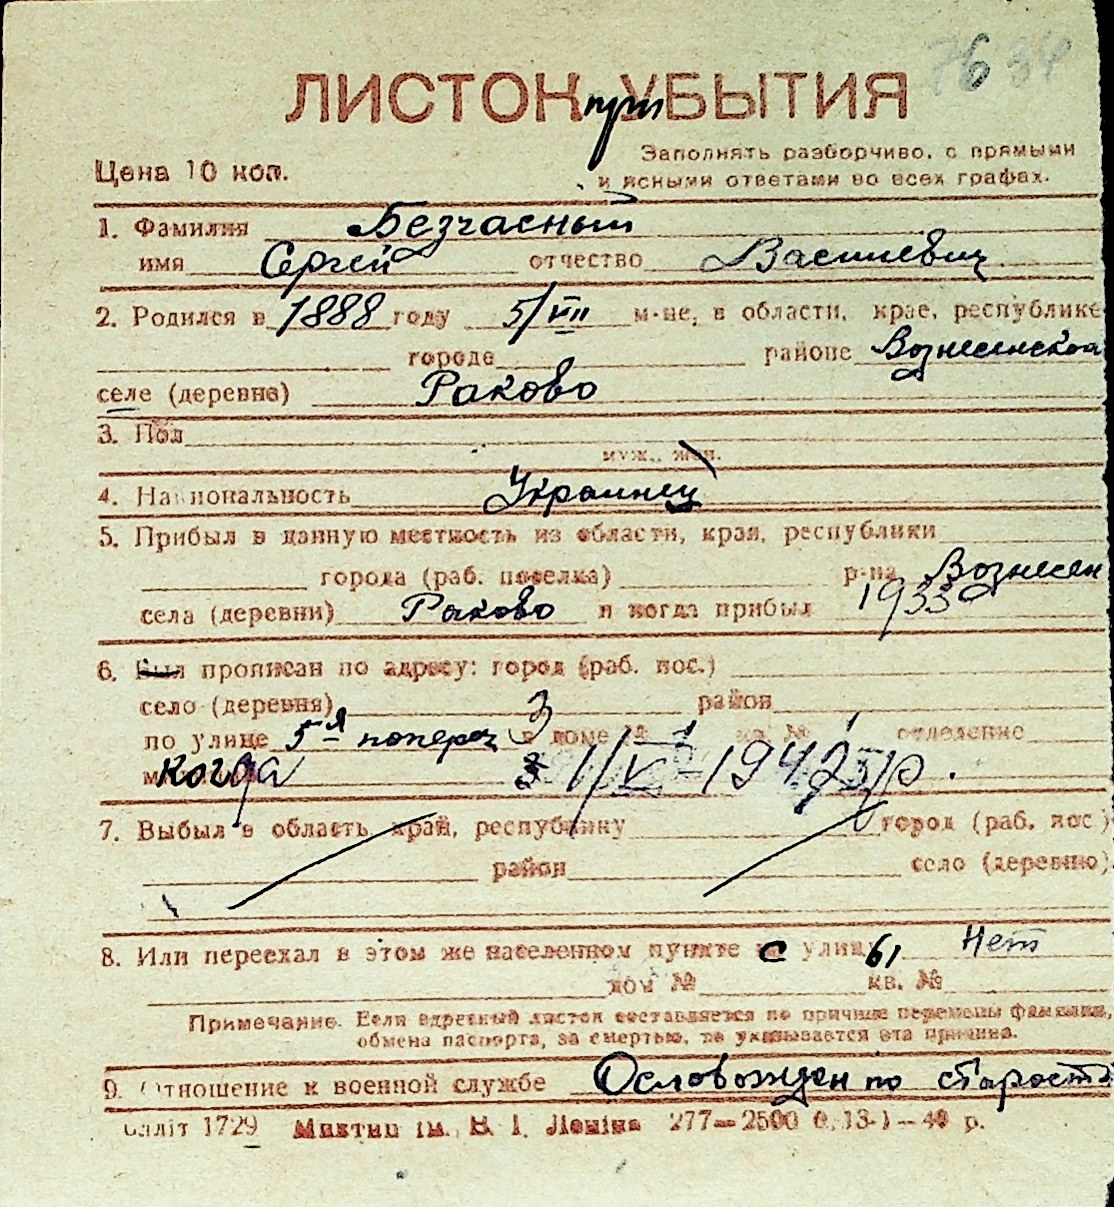 7634
ЛИСТОК прУБЫТИЯ
Цена 10 коп.
Заполнять разборчиво, с прямыми
и ясными ответами во всех графах.
1. Фамилия Безчасный
имя Сергей отчество Василевич
2. Родился в 1888 году 5/VIII м-це, в области, крае, республике
городе районе Вознесенском
селе (деревне) Раково
3. Пол
муж., жен.
4. Национальность Украинец
5. Прибыл в данную местность из области, края, республики
города (раб. поселка) р-на Вознесен
села (деревни) Раково и когда прибыл 1933
6. Был прописан по адресу: город (раб. пос.)
село (деревня) район
по улице 5-я попереч в доме № 3 кв. № отделение
когда 1/V-1942 р.
7. Выбыл в область, край, республику город (раб. пос.)
район село (деревню)
8. Или переехал в этом же населенном пункте с улицы Нет
дом № кв. №
Примечание. Если адресный листок составляется по причине перемены фамилии,
обмена паспорта, за смертью, то указывается эта причина.
9. Отношение к военной службе Ословожден по старости
Облліт 1729 Миктип ім. В. І. Леніна 277—2500 13-1-40 р.